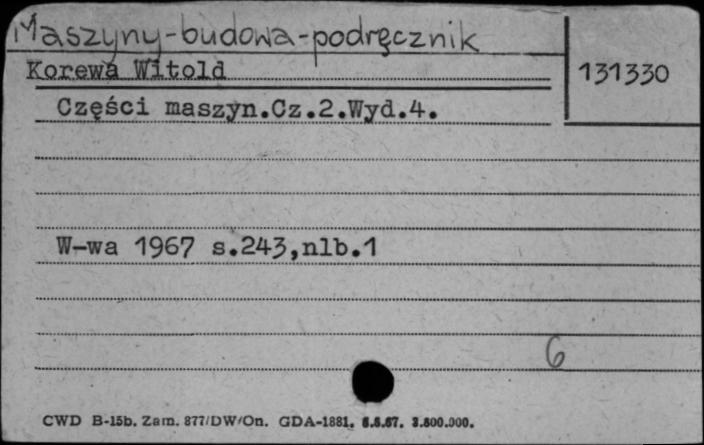 Maszyny-budowa-podręcznik
Korewa Witold
131330
Części maszyn.Cz.2.Wyd.4.
W-wa 1967 s.243,nlb.1
6
CWD B-15b. Zam. 877/DW/On. GDA-1881. 6.6.67. 3.800.000.